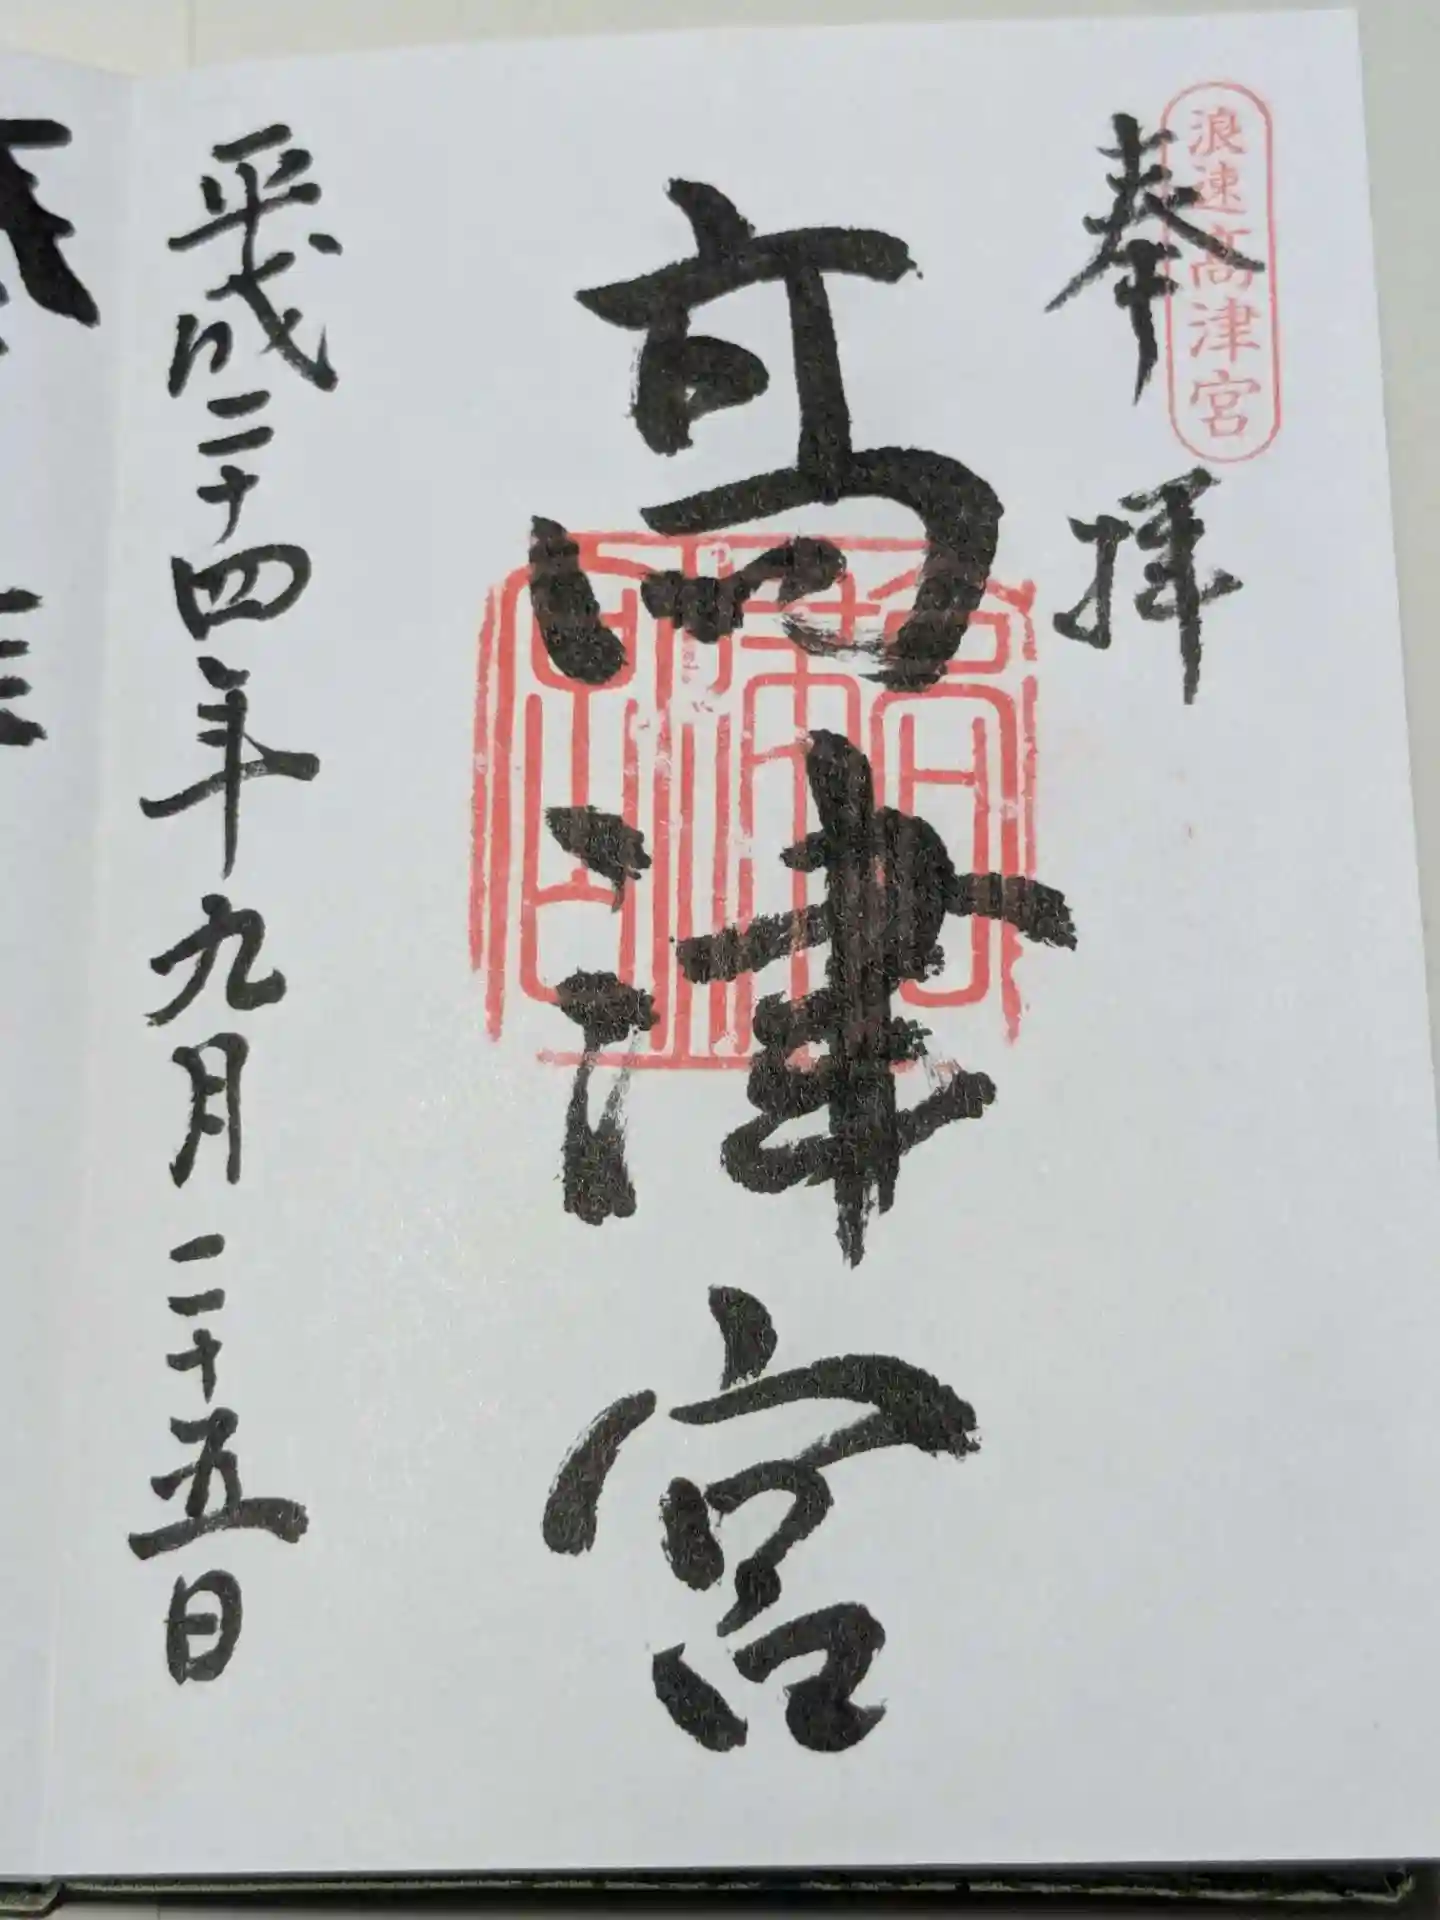 浪速高津宮
奉拝
高津宮
平成二十四年九月二十五日